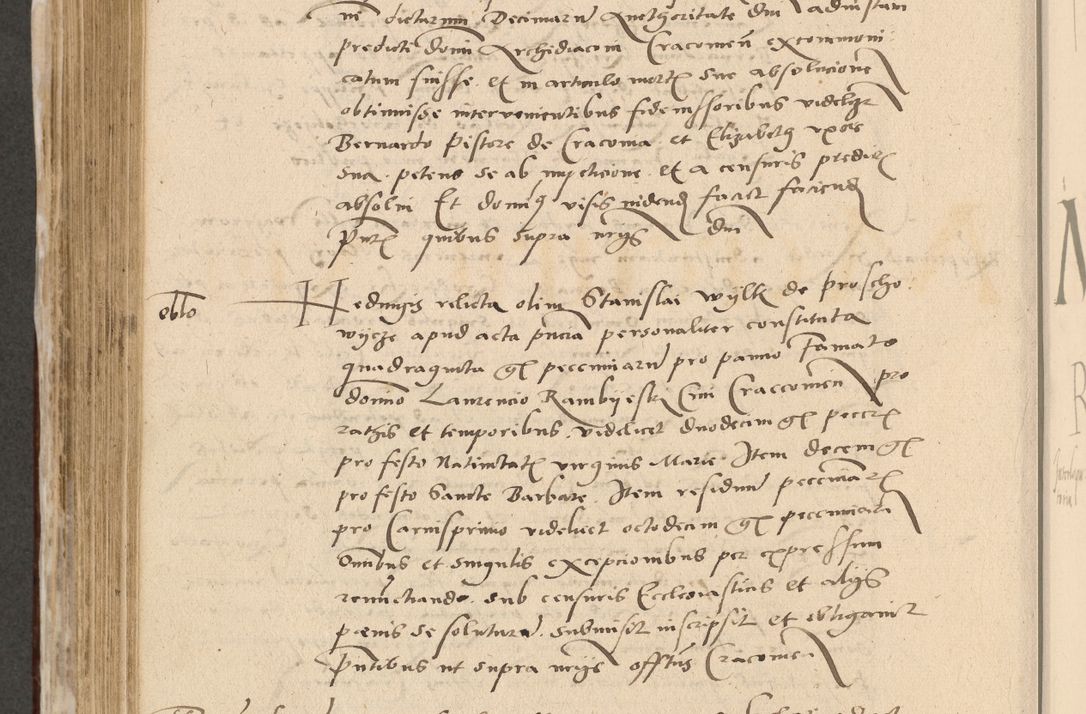 ni dictarum Decimarum Auctoritate dni administrat
predicti domi Archidiaconi Cracovien excommuni
catum fuisse et in articulo mortis sue absolucione
obtinuisse intervenientibus fideiussoribus videlicet
Bernardo Pistore de Cracovia et Elizabeth uxore
sua petens se ab impeticione et a censuris predictis
absolvi Et dominus visis videndis faciet faciendis
Pntibus quibus supra
oblo
Hedvigis relicta olim Stanislai Wylk de Proscho
wycze apud acta pncia personaliter constituta
quadraginta gr pecuniarum pro panno Famato
domino Laurencio Rambyestki Civi Craccovien pro
rathis et temporibus videlicet duodecim gr peccar
pro festo Nativitatis virginis Marie Item decem gr
pro festo Sancte Barbare Item residuum pecuniar
pro Carnisprivio videlicet octodecim gr pecuniar
Omnibus et singulis excepcionibus per expressum
renunctiando sub censuris Ecclesiasticis et alys
penis se soluturam submisit inscripsit et obligavit
Pntibus ut supra Cracovien